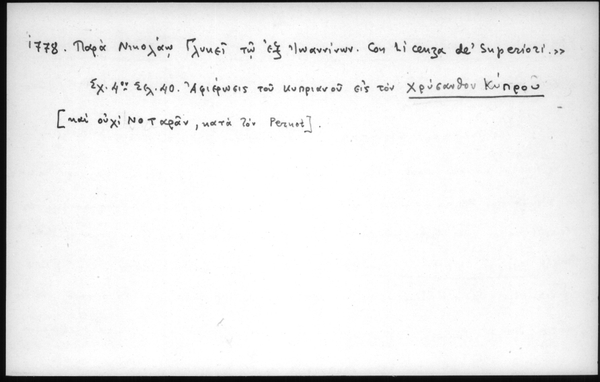 1778. Παρὰ Νικολάῳ Γλυκεῖ τῷ ἐξ Ἰωαννίνων. Con licenza de' Superiori.»
Σχ. 4ον Σελ. 40. Ἀφιέρωσις τοῦ Κυπριανοῦ εἰς τὸν Χρύσανθον Κύπρου
[καὶ οὐχὶ Νοταρᾶν, κατὰ τὸν Pernot].